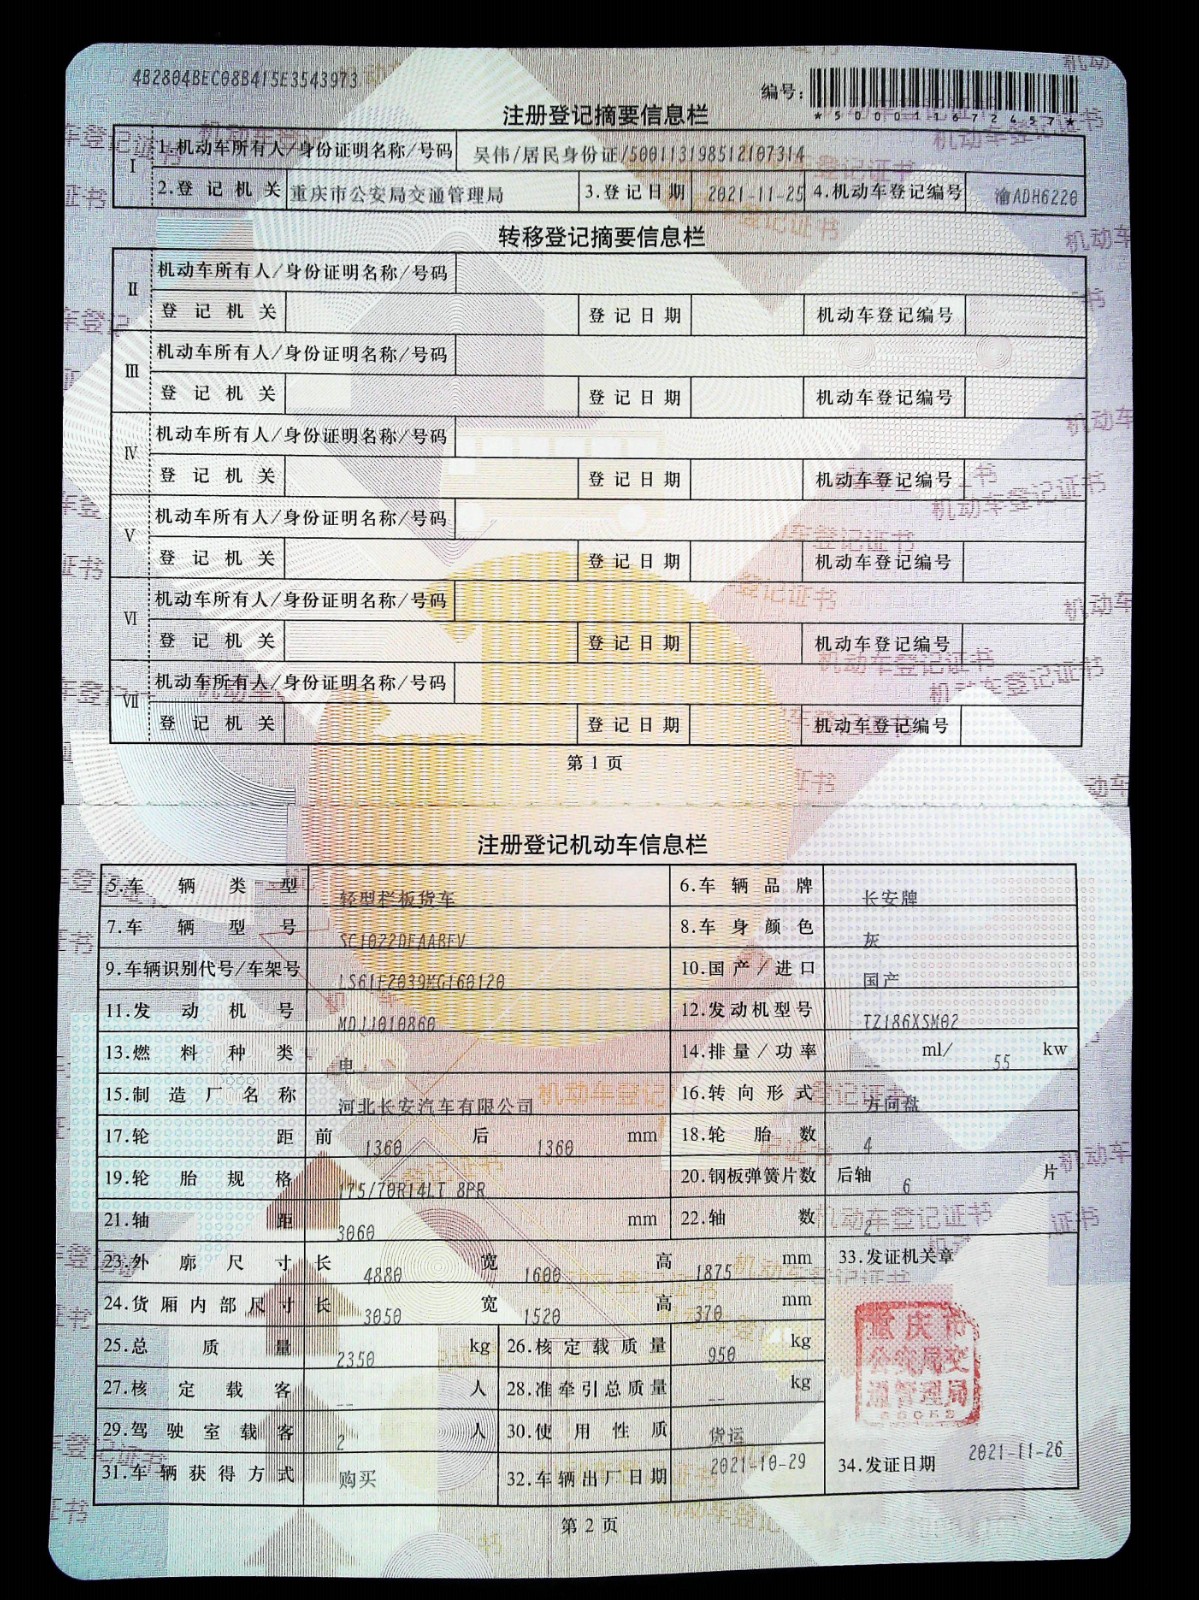 4B2804BEC08B415E3543973
编号:
*500011672457*
注册登记摘要信息栏
I
1.机动车所有人/身份证明名称/号码 吴伟/居民身份证/500113198512107314
2.登记机关 重庆市公安局交通管理局 3.登记日期 2021-11-25 4.机动车登记编号 渝ADH6220
转移登记摘要信息栏
II
机动车所有人/身份证明名称/号码
登记机关 登记日期 机动车登记编号
III
机动车所有人/身份证明名称/号码
登记机关 登记日期 机动车登记编号
IV
机动车所有人/身份证明名称/号码
登记机关 登记日期 机动车登记编号
V
机动车所有人/身份证明名称/号码
登记机关 登记日期 机动车登记编号
VI
机动车所有人/身份证明名称/号码
登记机关 登记日期 机动车登记编号
VII
机动车所有人/身份证明名称/号码
登记机关 登记日期 机动车登记编号
第1页
注册登记机动车信息栏
5.车辆类型 轻型栏板货车 6.车辆品牌 长安牌
7.车辆型号 SC1022DEAABEV 8.车身颜色 灰
9.车辆识别代号/车架号 10.国产/进口 国产
11.发动机号 MDJJ010860 12.发动机型号 TZ186XSM02
13.燃料种类 电 14.排量/功率 -- ml/ 55 kw
15.制造厂名称 河北长安汽车有限公司 16.转向形式 方向盘
17.轮距 前 1360 后 1360 mm 18.轮胎数 4
19.轮胎规格 175/70R14LT 8PR 20.钢板弹簧片数 后轴 6 片
21.轴距 3060 mm 22.轴数 2
23.外廓尺寸 长 4880 宽 1600 高 1875 mm 33.发证机关章
24.货厢内部尺寸 长 3050 宽 1520 高 370 mm
重庆市
公安局交
通管理局
25.总质量 2350 kg 26.核定载质量 950 kg
27.核定载客 -- 人 28.准牵引总质量 -- kg
29.驾驶室载客 2 人 30.使用性质 货运
31.车辆获得方式 购买 32.车辆出厂日期 2021-10-29 34.发证日期 2021-11-26
第2页